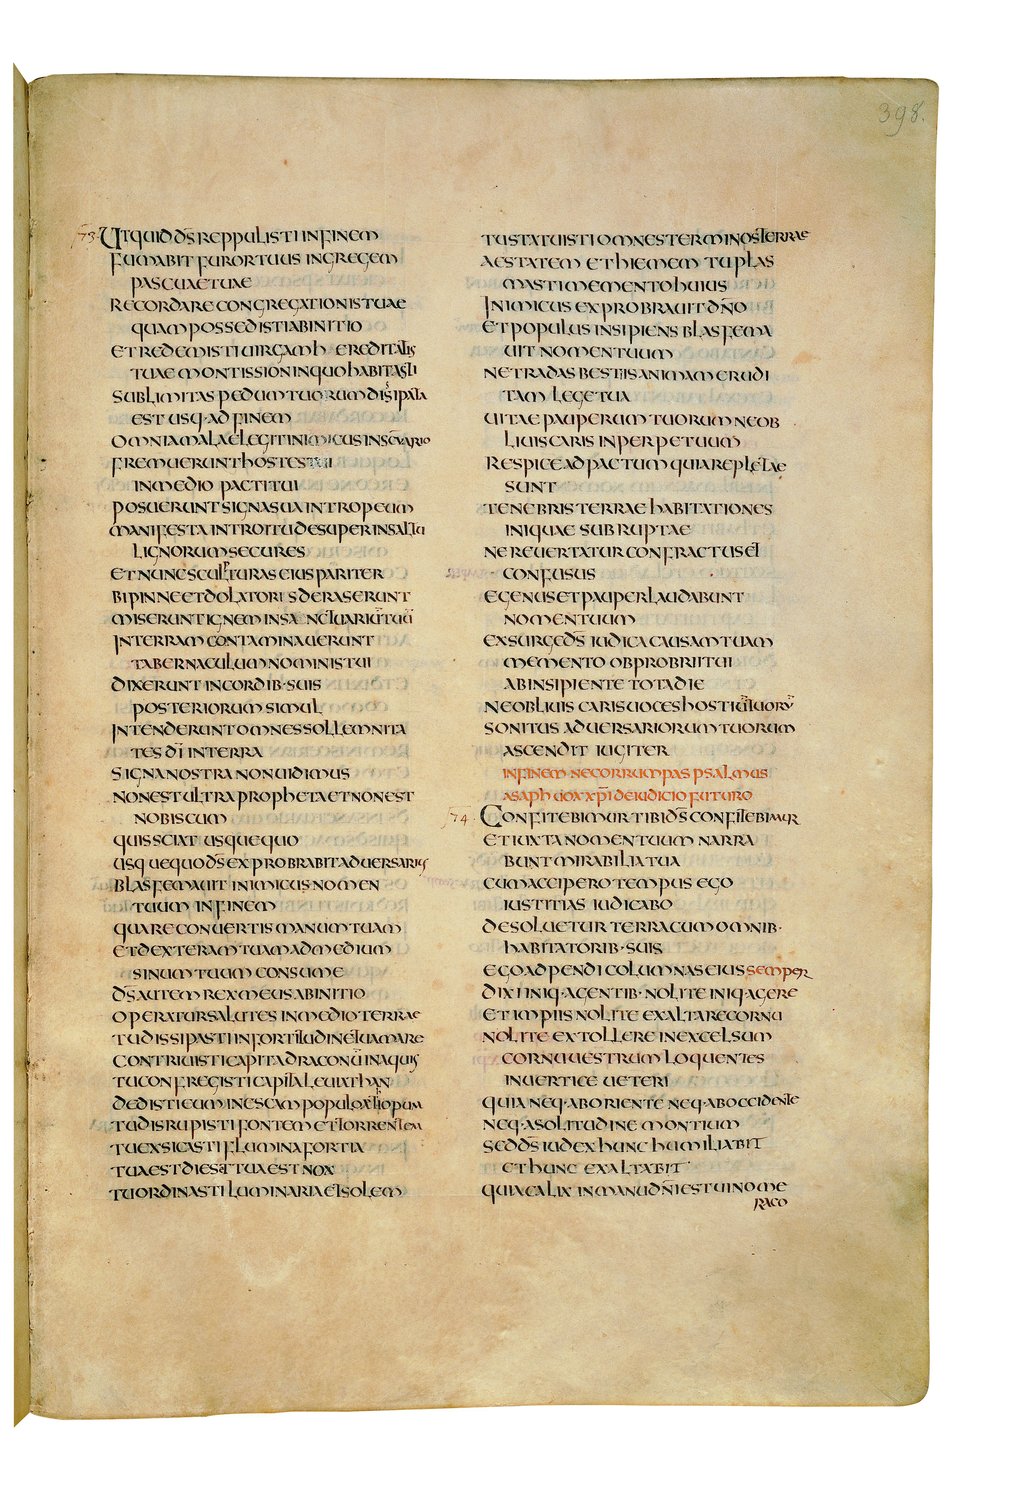 398.
73. UT QUID D̄S REPPULISTI IN FINEM
FUMABIT FUROR TUUS IN GREGEM
PASCUAE TUAE
RECORDARE CONGREGATIONIS TUAE
QUAM POSSEDISTI AB INITIO
ET REDEMISTI UIRGAM HEREDITATIS
TUAE MONTIS SION IN QUO HABITASTI
SUBLIMITAS PEDUM TUORUM DISSIPATA
EST USQ· AD FINEM
OMNIA MALA EGIT INIMICUS IN SC̄UARIO
FREMUERUNT HOSTES TUI
IN MEDIO PACTI TUI
POSUERUNT SIGNA SUA IN TROPEUM
MANIFESTA INTROITU DESUPER IN SALTU
LIGNORUM SECURES
ET NUNC SCULPTURAS EIUS PARITER
BIPINNE ET DOLATORIIS DERASERUNT
MISERUNT IGNEM IN SANCTUARIUM TUUM
IN TERRAM CONTAMINAUERUNT
TABERNACULUM NOMINIS TUI
DIXERUNT IN CORDIB· SUIS
POSTERI EORUM SIMUL
INTENDERUNT OMNES SOLLEMNITA
TES D̄I IN TERRA
SIGNA NOSTRA NON UIDIMUS
NON EST ULTRA PROPHETA ET NON EST
NOBISCUM
QUI SCIAT USQUEQUO
USQUEQUO D̄S EXPROBRABIT ADUERSARIUS
BLASFEMAUIT INIMICUS NOMEN
TUUM IN FINEM
QUARE CONUERTIS MANUM TUAM
ET DEXTERAM TUAM AD MEDIUM
SINUM TUUM CONSUME
D̄S AUTEM REX MEUS AB INITIO
OPERATUR SALUTES IN MEDIO TERRAE
TU DISSIPASTI IN FORTITUDINE TUA MARE
CONTRIUISTI CAPITA DRACONŪ IN AQUIS
TU CONFREGISTI CAPITA LEUIATHAN
DEDISTI EUM IN ESCAM POPULO AETHIOPUM
TU DISRUPISTI FONTEM ET TORRENTEM
TU EXSICASTI FLUMINA FORTIA
TUA EST DIES ET TUA EST NOX
TU ORDINASTI LUMINARIA ET SOLEM
TU STATUISTI OMNES TERMINOS TERRAE
AESTATEM ET HIEMEM TU PLAS
MASTI MEMENTO HUIUS
INIMICUS EXPROBRAUIT DN̄O
ET POPULUS INSIPIENS BLASFEMA
UIT NOMEN TUUM
NE TRADAS BESTIIS ANIMAM ERUDI
TAM LEGE TUA
UITAE PAUPERUM TUORUM NE OB
LIUISCARIS IN PERPETUUM
RESPICE AD PACTUM QUIA REPLETAE
SUNT
TENEBRIS TERRAE HABITATIONES
INIQUAE SUBRUPTAE
NE REUERTATUR CONFRACTUS ET
CONFUSUS
EGENUS ET PAUPER LAUDABUNT
NOMEN TUUM
EXSURGE D̄S IUDICA CAUSAM TUAM
MEMENTO OBPROBRII TUI
AB INSIPIENTE TOTA DIE
NE OBLIUISCARIS UOCES HOSTIUM TUORUM
SONITUS ADUERSARIORUM TUORUM
ASCENDIT IUGITER
IN FINEM NE CORRUMPAS PSALMUS
ASAPH UOX XP̄I DE IUDICIO FUTURO
74. CONFITEBIMUR TIBI D̄S CONFITEBIMUR
ET IUXTA NOMEN TUUM NARRA
BUNT MIRABILIA TUA
CUM ACCIPERO TEMPUS EGO
IUSTITIAS IUDICABO
DESOLUETUR TERRA CUM OMNIB·
HABITATORIB· SUIS
EGO ADPENDI COLUMNAS EIUS SEMPER
DIXI INIQ· AGENTIB· NOLITE INIQ· AGERE
ET IMPIIS NOLITE EXALTARE CORNU
NOLITE EXTOLLERE IN EXCELSUM
CORNU UESTRUM LOQUENTES
IN UERTICE UETERI
QUIA NEQ· AB ORIENTE NEQ· AB OCCIDENTE
NEQ· A SOLITUDINE MONTIUM
SED D̄S IUDEX HUNC HUMILIABIT
ET HUNC EXALTABIT
QUIA CALIX IN MANU DN̄I EST UINO ME
RACO